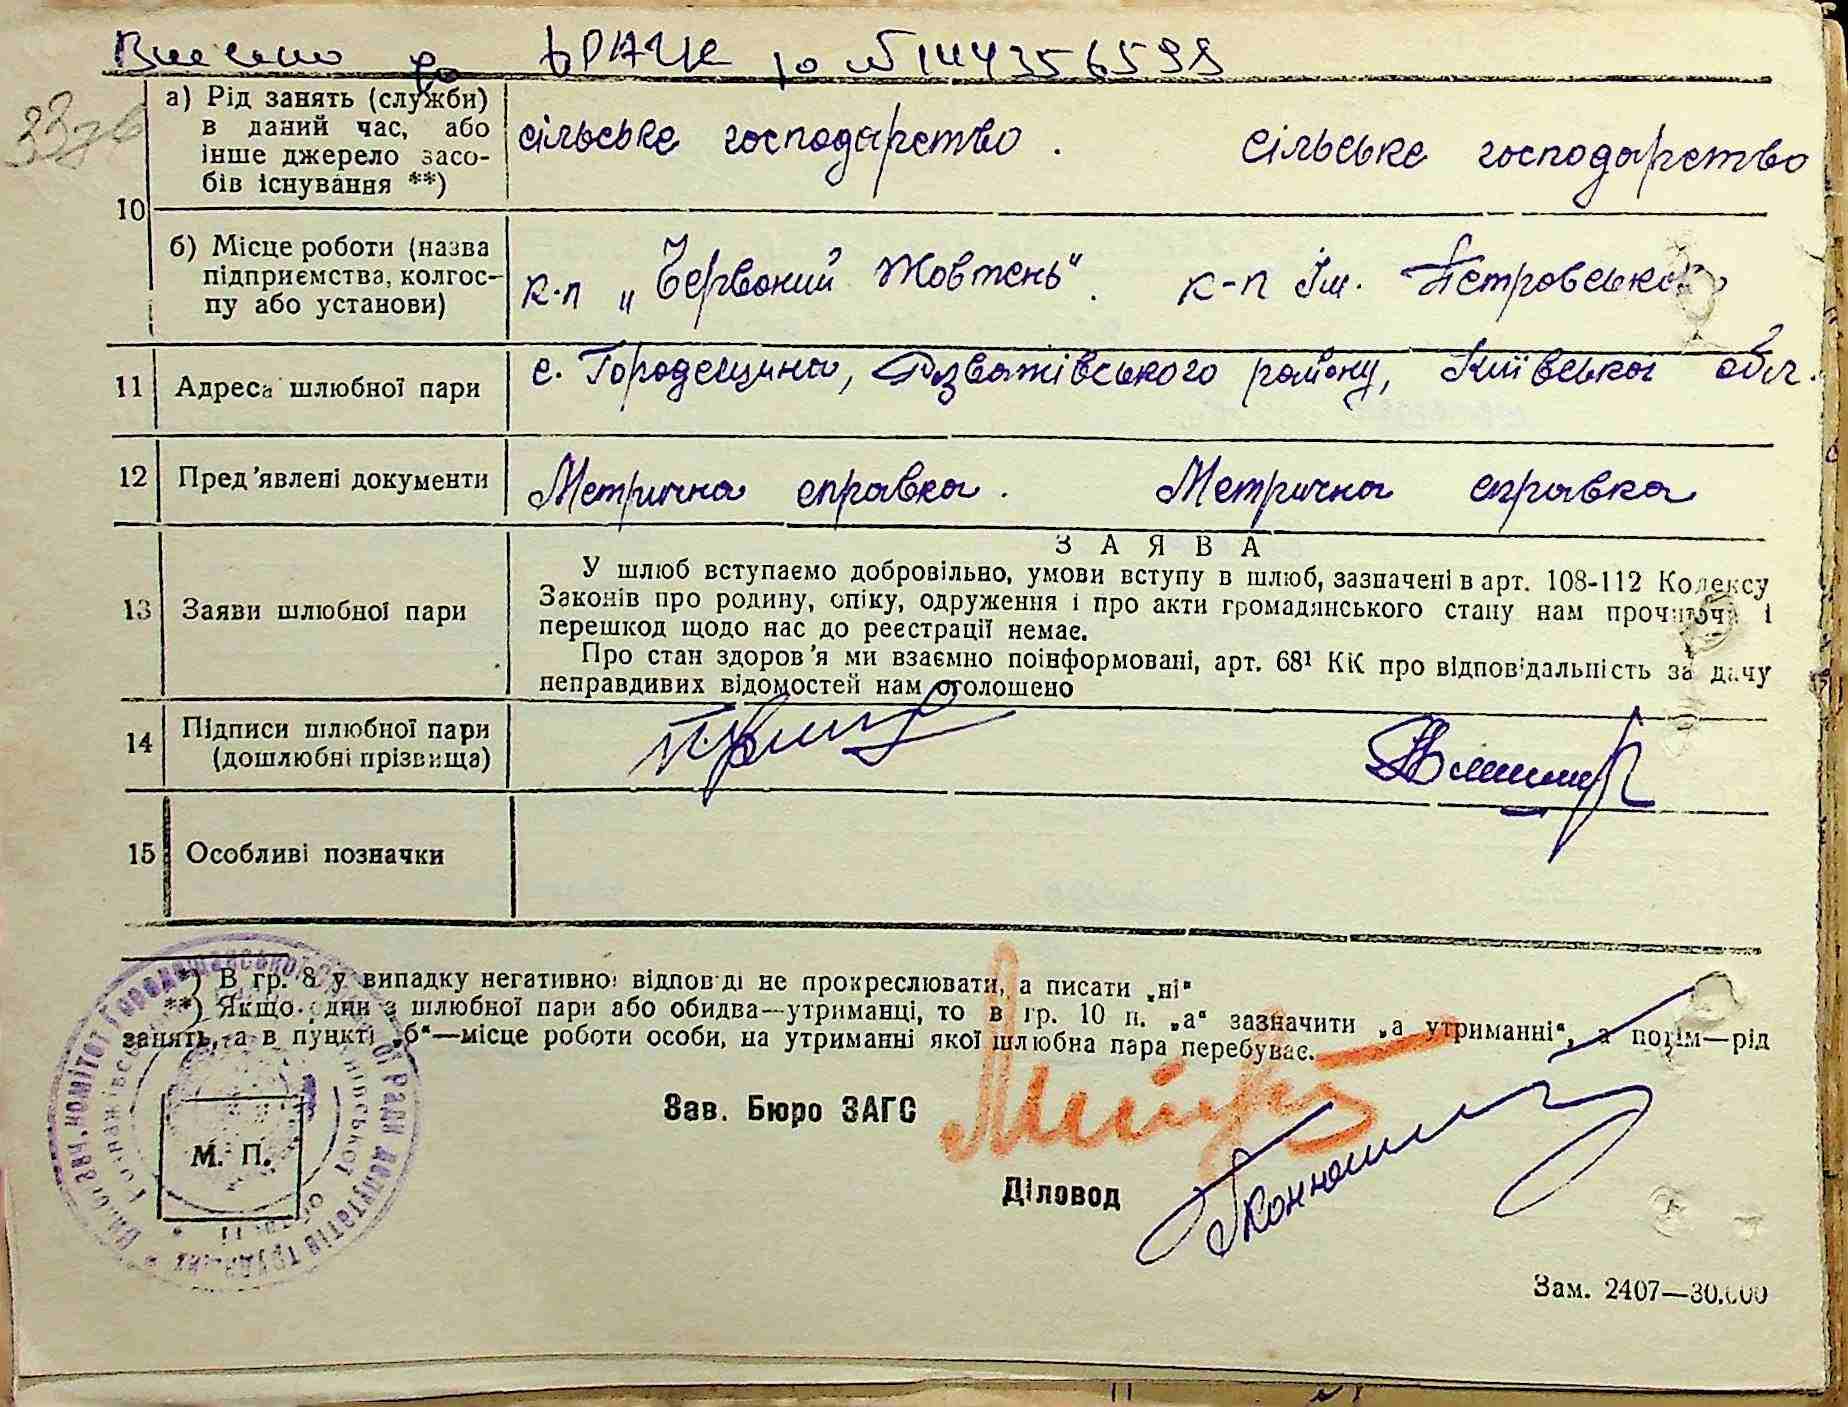 Внесено до ДРАЦС №144356599
33зв
10
а) Рід занять (служби)
в даний час, або
інше джерело засо-
бів існування **)
сільське господарство. сільське господарство
б) Місце роботи (назва
підприємства, колгос-
пу або установи)
к-п „Червоний Жовтень". к-п Ім. Петровського
11 Адреса шлюбної пари
с. Городещина, Розважівського району, Київської обл.
12 Пред'явлені документи
Метрична справка. Метрична справка
13 Заяви шлюбної пари
ЗАЯВА
У шлюб вступаємо добровільно, умови вступу в шлюб, зазначені в арт. 108-112 Кодексу
Законів про родину, опіку, одруження і про акти громадянського стану нам прочиточі і
перешкод щодо нас до реєстрації немає.
Про стан здоров'я ми взаємно поінформовані, арт. 68¹ КК про відповідальність за дачу
неправдивих відомостей нам оголошено
14 Підписи шлюбної пари
(дошлюбні прізвища)
15 Особливі позначки
*) В гр. 8 у випадку негативної відповіді не прокреслювати, а писати „ні"
**) Якщо один з шлюбної пари або обидва—утриманці, то в гр. 10 п. „а" зазначити „а утриманні", а потім—рід
занять, а в пункті „б"—місце роботи особи, на утриманні якої шлюбна пара перебуває.
Зав. Бюро ЗАГС
М. П.
Діловод
Зам. 2407—30.000